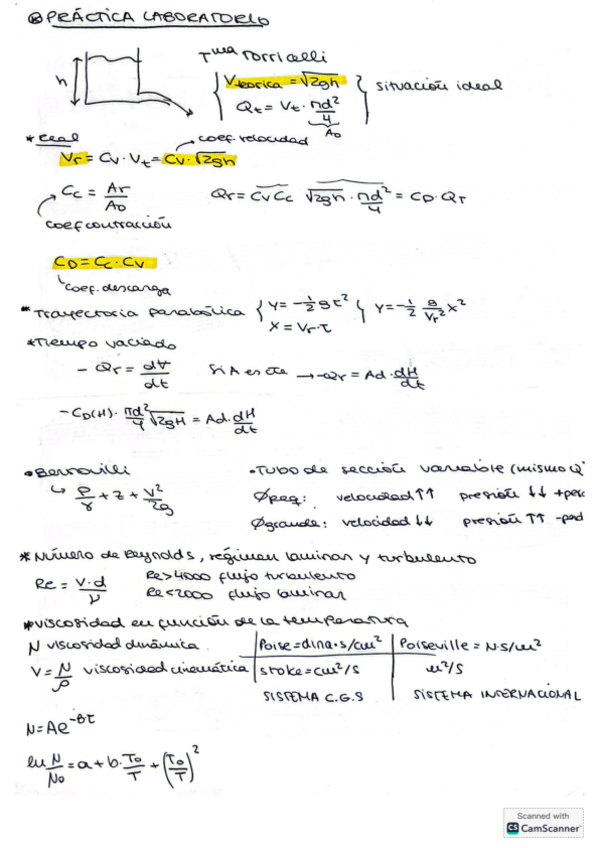 ⊛ PRÁCTICA LABORATORIO
h
Tma Torricelli
Vteorica = √2gh
Qt = Vt · πd²/4
A0
situación ideal
* Real
coef. velocidad
Vr = Cv · Vt = Cv · √2gh
Cc = Ar/A0
Qr = CvCc √2gh · πd²/4 = CD · QT
coef contracción
CD = Cc · Cv
coef. descarga
* Trayectoria parabólica { y = -1/2 g t² } y = -1/2 g/Vr² x²
x = Vr · t
* Tiempo vaciado
- Qr = dV/dt Si A es cte → -Qr = Ad · dH/dt
- CD(H) · πd²/4 √2gH = Ad · dH/dt
• Bernouilli
↳ P/γ + z + V²/2g
• Tubo de sección variable (mismo Q
Øpeq: velocidad ↑↑ presión ↓↓ +perd
Øgrande: velocidad ↓↓ presión ↑↑ -perd
* Número de Reynolds, régimen laminar y turbulento
Re = V·d/ν
Re>4000 flujo turbulento
Re<2000 flujo laminar
* Viscosidad en función de la temperatura
N viscosidad dinámica | Poise = dina·s/cm² | Poiseville = N·s/m²
V = N/ρ viscosidad cinemática | stoke = cm²/s | m²/s
SISTEMA C.G.S SISTEMA INTERNACIONAL
N = Ae^-Bt
ln N/N0 = a + b · T0/T + (T0/T)²
Scanned with
CS CamScanner